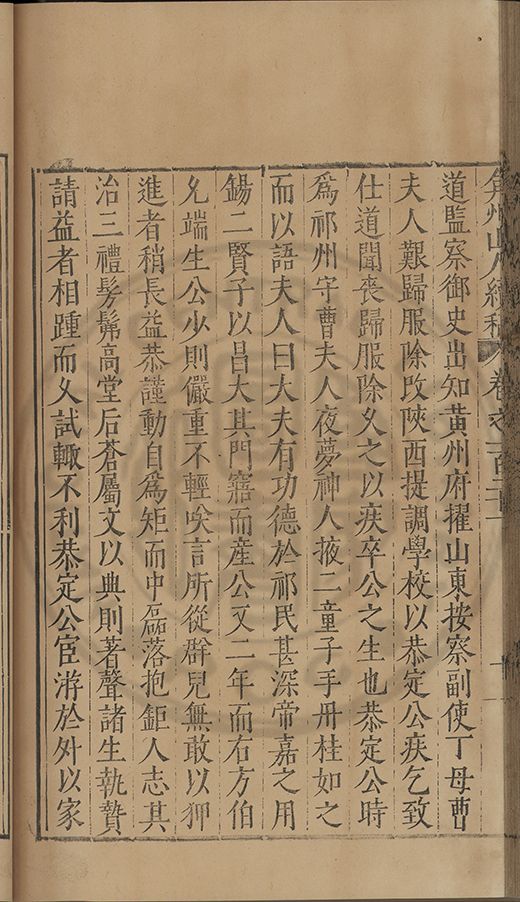 弇州山人續稿 卷之一百三十一 十一
道監察御史出知黃州府擢山東按察副使丁母曹
夫人艱歸服除改陝西提調學校以恭定公疾乞致
仕道聞喪歸服除久之以疾卒公之生也恭定公時
爲祁州守曹夫人夜夢神人掖二童子手丹桂如之
而以語夫人曰大夫有功德於祁民甚深帝嘉之用
錫二賢子以昌大其門寤而產公又二年而右方伯
允端生公少則儼重不輕唉言所從群兒無敢以狎
進者稍長益恭謹動自爲矩而中磊落抱鉅人志其
治三禮髣髴高堂后蒼屬文以典則著聲諸生執贄
請益者相踵而久試輙不利恭定公宦游於外以家